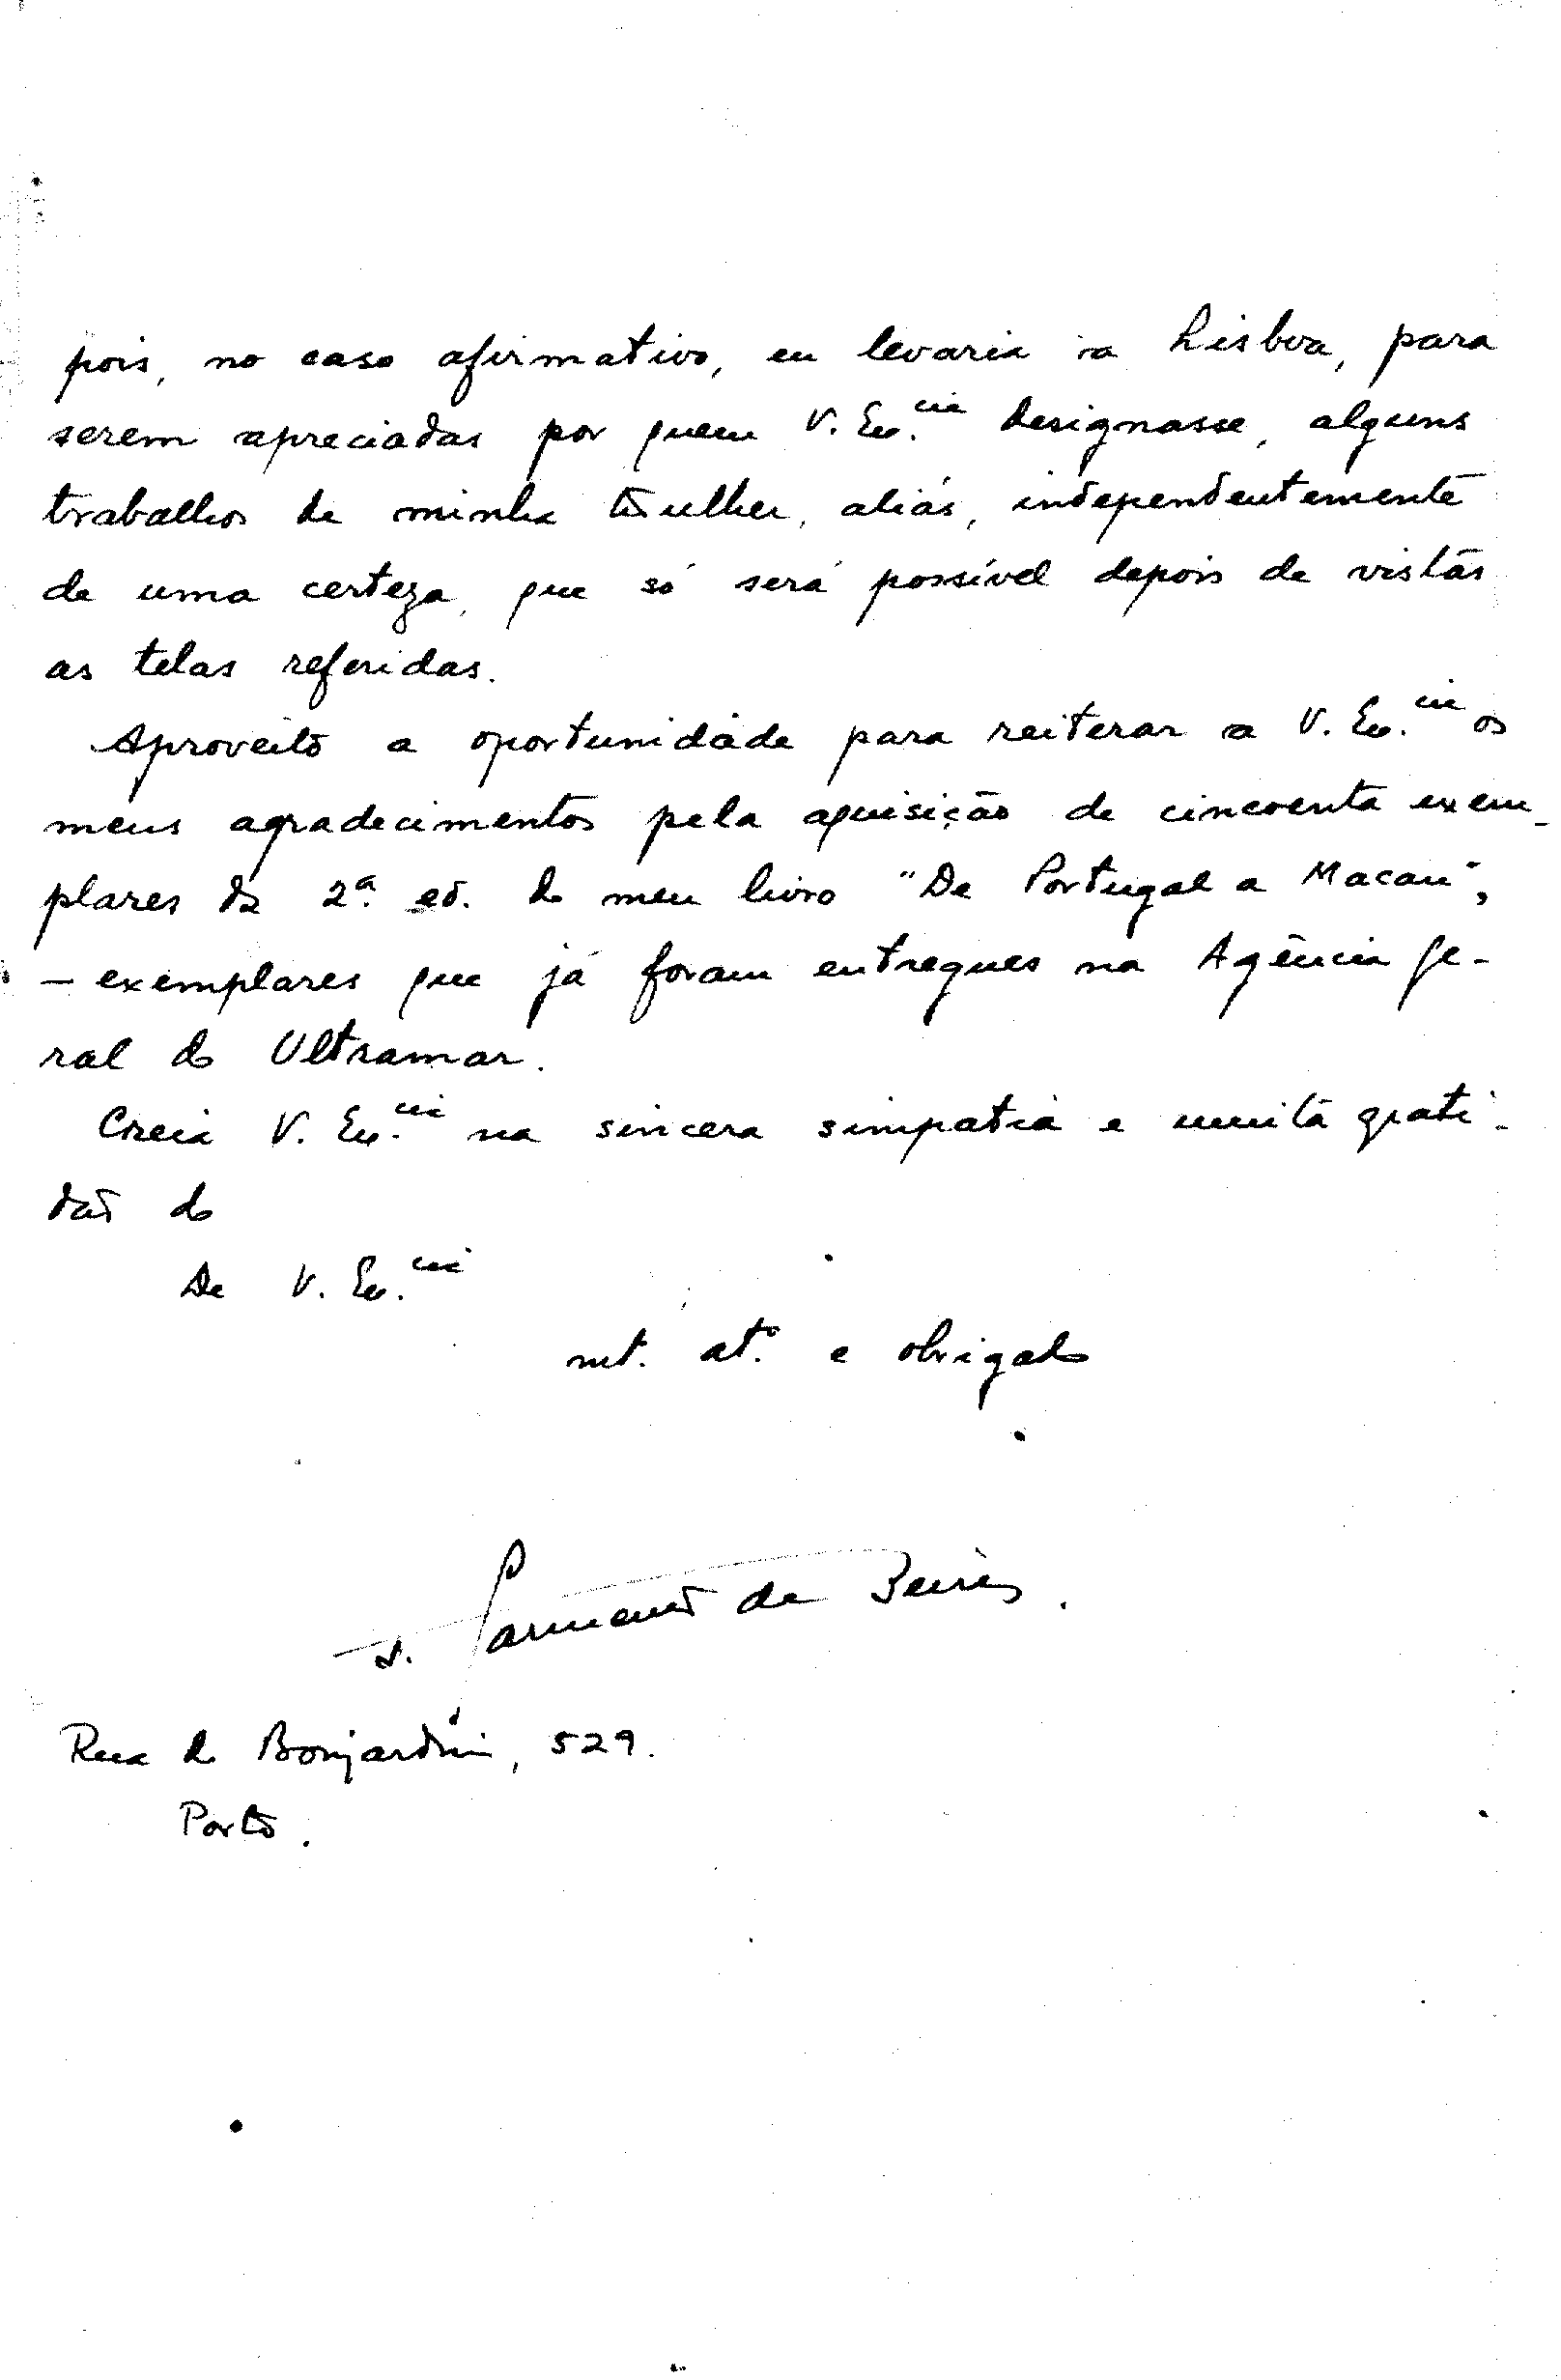 pois, no caso afirmativo, eu levaria a Lisboa, para
serem apreciadas por quem V. Ex.cia designasse, alguns
trabalhos de minha Mulher, aliás, independentemente
de uma certeza, que só será possível depois de vistas
as telas referidas.
Aproveito a oportunidade para reiterar a V. Ex.cia os
meus agradecimentos pela aquisição de cincoenta exem-
plares da 2.ª ed. do meu livro "De Portugal a Macau",
— exemplares que já foram entregues na Agência Ge-
ral do Ultramar.
Creia V. Ex.cia na sincera simpatia e muita grati-
dão do
De V. Ex.cia
mt. at.º e obrigado
J. Sarmento de Beires.
Rua do Bonjardim, 529.
Porto.